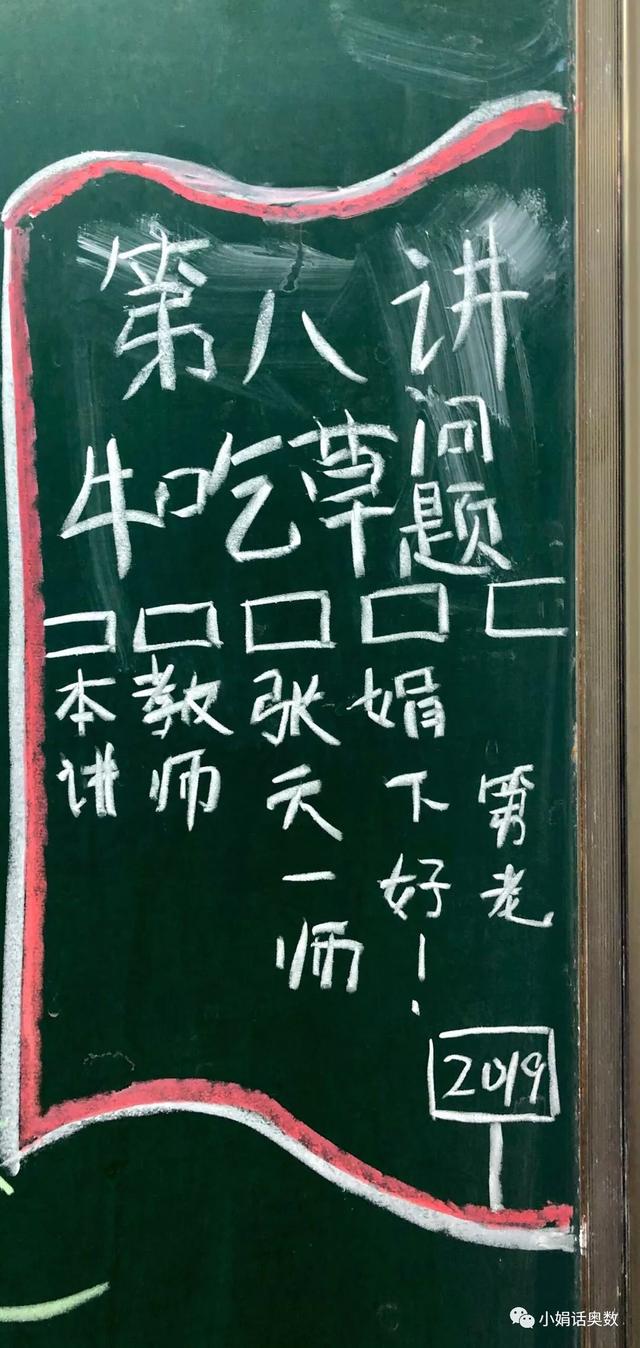 第八讲
牛吃草问题
本讲教师张娟
天下第
一好老
师！
2019
小娟话奥数